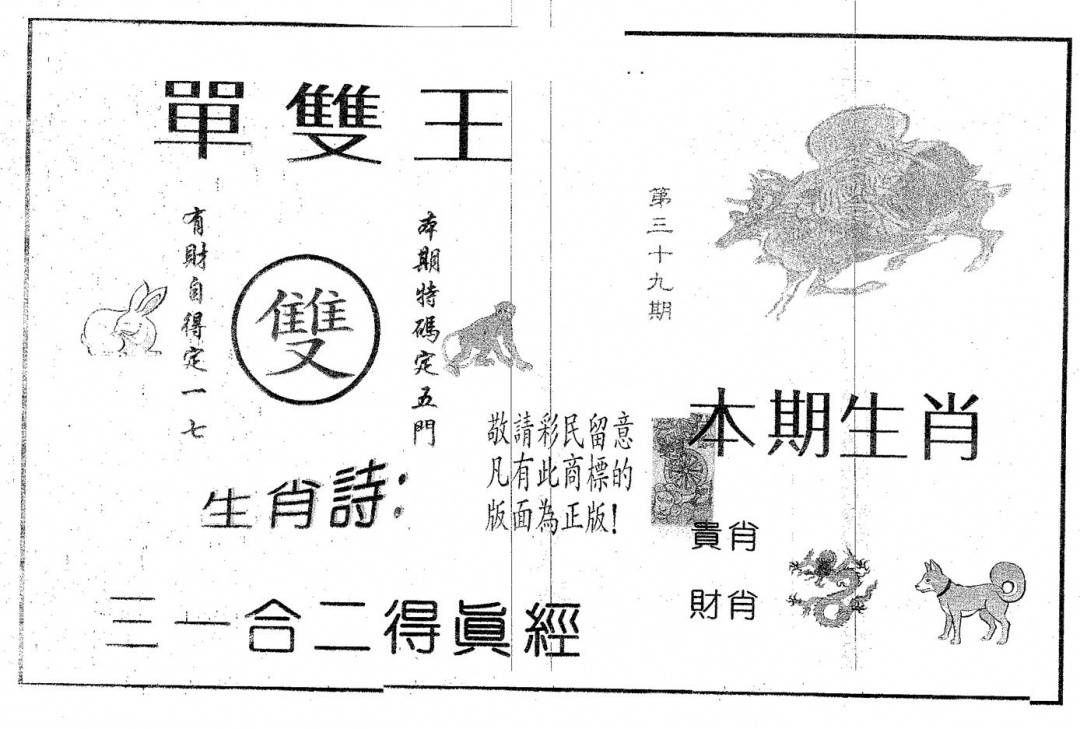 單雙王
第三十九期
本期特碼定五門
雙
有財自得定一七
敬請彩民留意
凡有此商標的
版面為正版!
本期生肖
生肖詩:
貴肖
財肖
三一合二得眞經